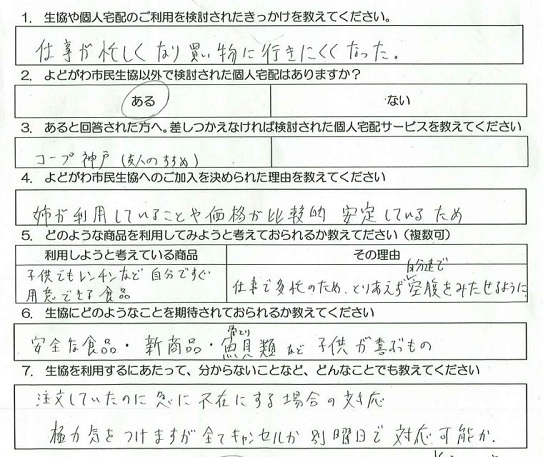 1. 生協や個人宅配のご利用を検討されたきっかけを教えてください。
仕事が忙しくなり買い物に行きにくくなった。
2. よどがわ市民生協以外で検討された個人宅配はありますか？
ある ない
3. あると回答された方へ。差しつかえなければ検討された個人宅配サービスを教えてください
コープ神戸（友人のすすめ）
4. よどがわ市民生協へのご加入を決められた理由を教えてください
姉が利用していることや価格が比較的 安定しているため
5. どのような商品を利用してみようと考えておられるか教えてください（複数可）
利用しようと考えている商品 その理由
子供でもレンチンなど自分ですぐ
用意できる食品
自分達で
仕事で多忙のため、とりあえず空腹をみたせるように
6. 生協にどのようなことを期待されておられるか教えてください
骨とり
安全な食品・新商品・魚貝類など子供が喜ぶもの
7. 生協を利用するにあたって、分からないことなど、どんなことでも教えてください
注文していたのに急に不在にする場合の対応
極力気をつけますが全てキャンセルか別曜日で対応可能か。